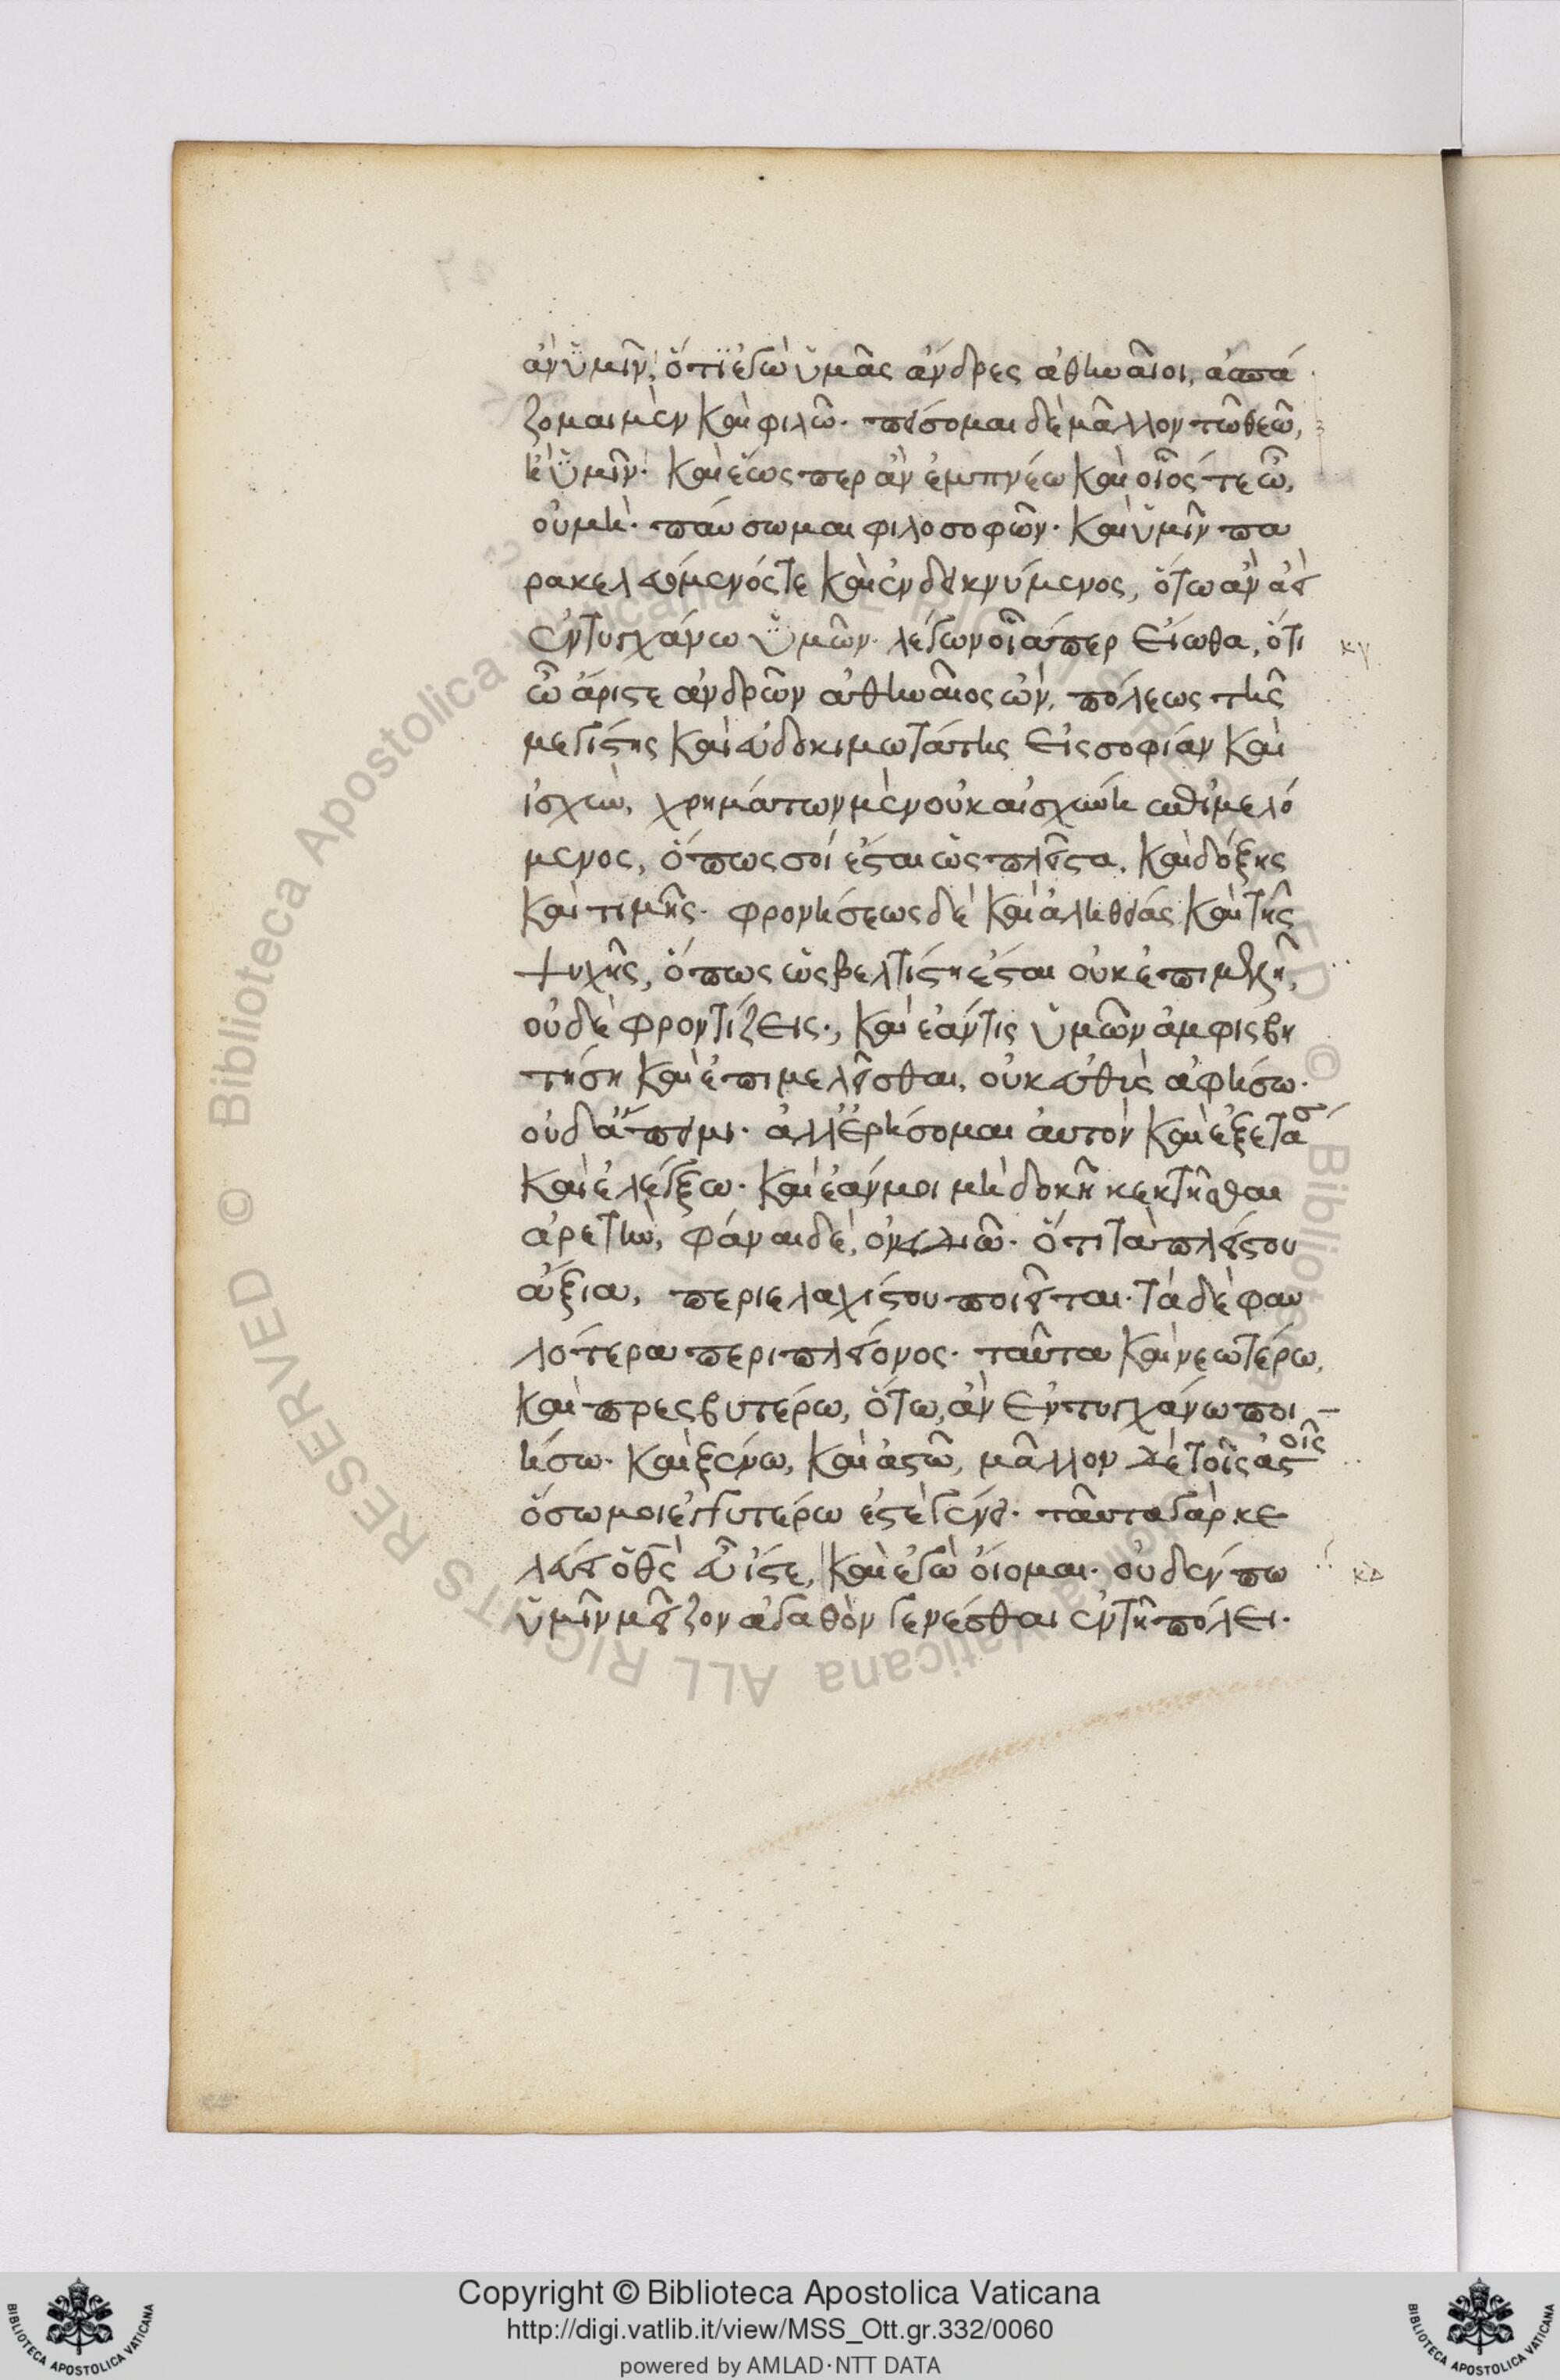 ἂν ὑμῖν, ὅτι ἐγὼ ὑμᾶς ἄνδρες ἀθηναῖοι, ἀσπά
ζομαι μὲν καὶ φιλῶ· πείσομαι δὲ μᾶλλον τῶ θεῶ,
ἢ ὑμῖν· καὶ ἕως περ ἂν ἐμπνέω καὶ οἷός τε ὦ,
οὐ μὴ παύσωμαι φιλοσοφῶν· καὶ ὑμῖν πα
ρακελευόμενός τε καὶ ἐνδεικνύμενος, ὅτω ἂν ἀεὶ
ἐντυγχάνω ὑμῶν· λέγων οἷά περ εἴωθα, ὅτι
ὦ ἄριστε ἀνδρῶν ἀθηναῖος ὢν, πόλεως τῆς
μεγίστης καὶ εὐδοκιμωτάτης εἰς σοφίαν καὶ
ἰσχὺν, χρημάτων μὲν οὐκ αἰσχύνη ἐπιμελό
μενος, ὅπως σοί ἔσται ὡς πλεῖστα, καὶ δόξης
καὶ τιμῆς· φρονήσεως δὲ καὶ ἀληθείας καὶ τῆς
ψυχῆς, ὅπως ὡς βελτίστη ἔσται οὐκ ἐπιμελῆ,
οὐδὲ φροντίζεις·, καὶ ἐάν τις ὑμῶν ἀμφισβη
τήση καὶ ἐπιμελεῖσθαι, οὐκ εὐθὺς ἀφήσω·
οὐδ' ἄπειμι· ἀλλ' ἐρήσομαι αὐτὸν καὶ ἐξετάσω
καὶ ἐλέγξω· καὶ ἐάν μοι μὴ δοκῆ κεκτῆσθαι
ἀρετὴν, φάναι δὲ, ὀνειδιῶ· ὅτι τὰ πλείστου
ἄξια, περὶ ἐλαχίστου ποιεῖται· τὰ δὲ φαυ
λότερα περὶ πλείονος· ταῦτα καὶ νεωτέρω,
καὶ πρεσβυτέρω, ὅτω, ἂν ἐντυγχάνω ποι
ήσω· καὶ ξένω, καὶ ἀστῶ, μᾶλλον δὲ τοῖς ἀστοῖς
ὅσω μοι ἐγγυτέρω ἐστὲ γένει· ταῦτα γὰρ κε
λεύει ὁ θς εὖ ἴστε, καὶ ἐγὼ οἴομαι· οὐδέν πω
ὑμῖν μεῖζον ἀγαθὸν γενέσθαι ἐν τῆ πόλει·
κγ
κδ
© Biblioteca Apostolica Vaticana ALL RIGHTS RESERVED
Copyright © Biblioteca Apostolica Vaticana
http://digi.vatlib.it/view/MSS_Ott.gr.332/0060
powered by AMLAD·NTT DATA
BIBLIOTECA APOSTOLICA VATICANA
BIBLIOTECA APOSTOLICA VATICANA